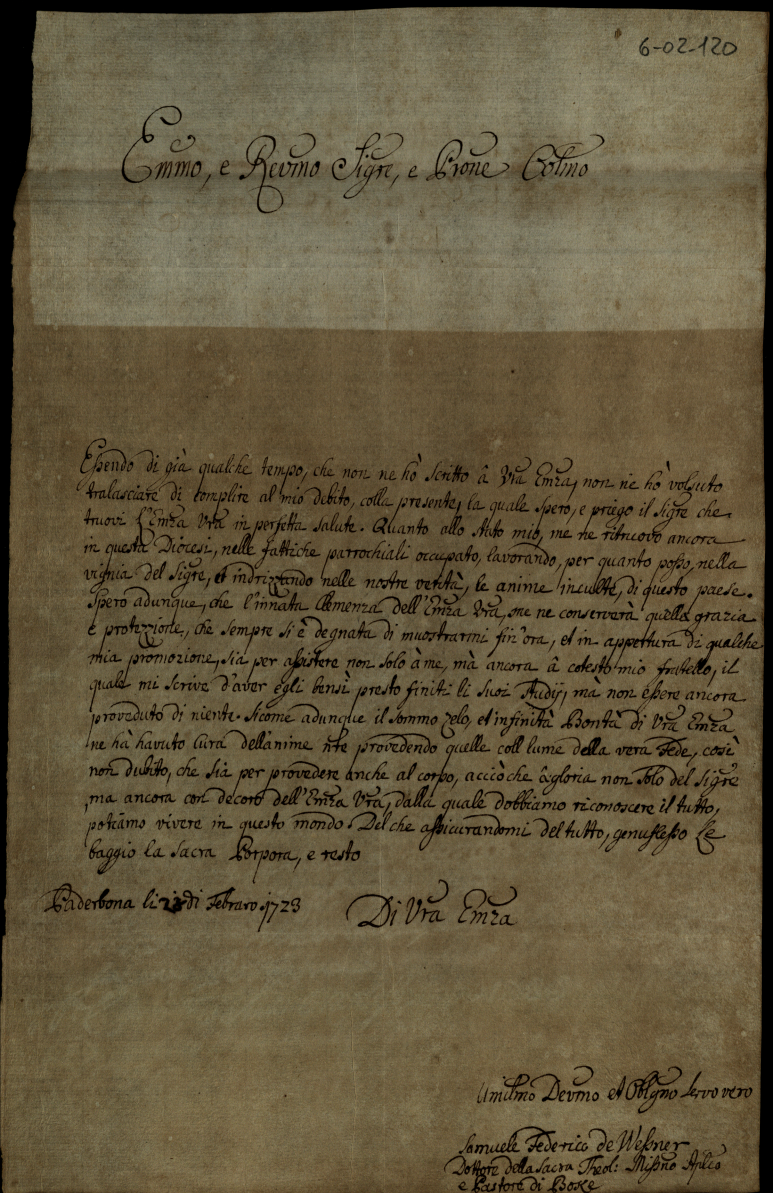 6-02-120
Emmo, e Revmo Sigre, e Prone Colmo
Essendo di già qualche tempo, che non ne hò scritto â Vra Emza, non ne hò volsuto
tralasciare di complire al mio debito, colla presente, la quale spero, e priego il Sigre che
truovi l'Emza Vra in perfetta salute. Quanto allo stato mio, me ne ritruovo ancora
in questa Diocesi, nelle fattiche parrochiali occupato, lavorando, per quanto posso, nella
vignia del Sigre, et indrizzando nelle nostre verità, le anime inculte, di questo paese.
Spero adunque, che l'innata Clemenza dell'Emza Vra, me ne conserverà quella grazia
e protezzione, che sempre si è degnata di muostrarmi fin'ora, et in appettura di qualche
mia promozione, sià per assistere non solo à me, mà ancora â cotesto mio fratello, il
quale mi scrive d'aver egli bensì presto finiti li suoi Studij, mà non essere ancora
proveduto di niente. Sicome adunque il sommo zelo, et infinità Bontà di Vra Emza
ne hà havuto cura dell'anime nre provedendo quelle coll lume della vera Fede, così
non dubito, che sià per provedere anche al corpo, acciò che â gloria non solo del Sigre
ma ancora con decoro dell'Emza Vra, dalla quale dobbiamo riconoscere il tutto,
potiamo vivere in questo mondo. Del che assicurandomi del tutto, genuflesso Le
baggio la Sacra Porpora, e resto
Paderbona li di Febraro 1723 Di Vra Emza
Umilmo Devmo et Obligmo Servo vero
Samuele Federico de Wessner
Dottore della Sacra Theol: Missno Aplico
e Pastore di Boke